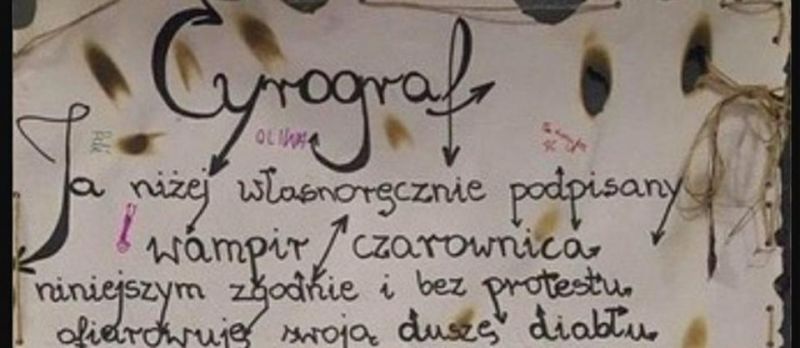 Cyrograf
OLIWA
Ja niżej własnoręcznie podpisany
wampir / czarownica
niniejszym zgodnie i bez protestu
ofiarowuję swoją duszę diabłu